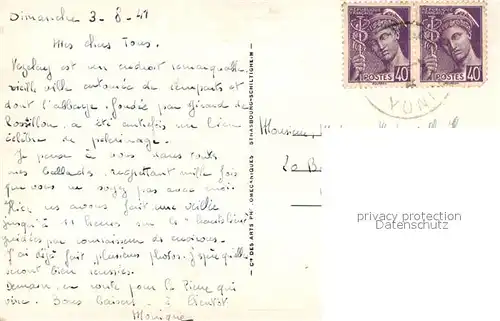 Dimanche 3-8-41
Mes chers Tous.
Vezelay est un endroit remarquable
vieille ville entourée de remparts et
dont l'abbaye fondée par Girard de
Rossillon, a été autrefois un lieu
célèbre de pélerinage.
Je pense à vous dans toutes
mes ballades, regrettant mille fois
que vous ne soyez pas avec moi.
Hier nous avons fait une veillée
jusqu'à 11 heures sur le
guidées par connaisseur des environs.
J'ai déjà fait plusieurs photos. J'espère qu'elles
seront bien réussies.
Demain, en route pour la Pierre qui
vire. Bons baisers - à bientôt
Monique
Cie DES ARTS PHOTOMECANIQUES STRASBOURG-SCHILTIGHEIM
POSTES 40
POSTES 40
YONNE
Monsieur,
privacy protection
Datenschutz